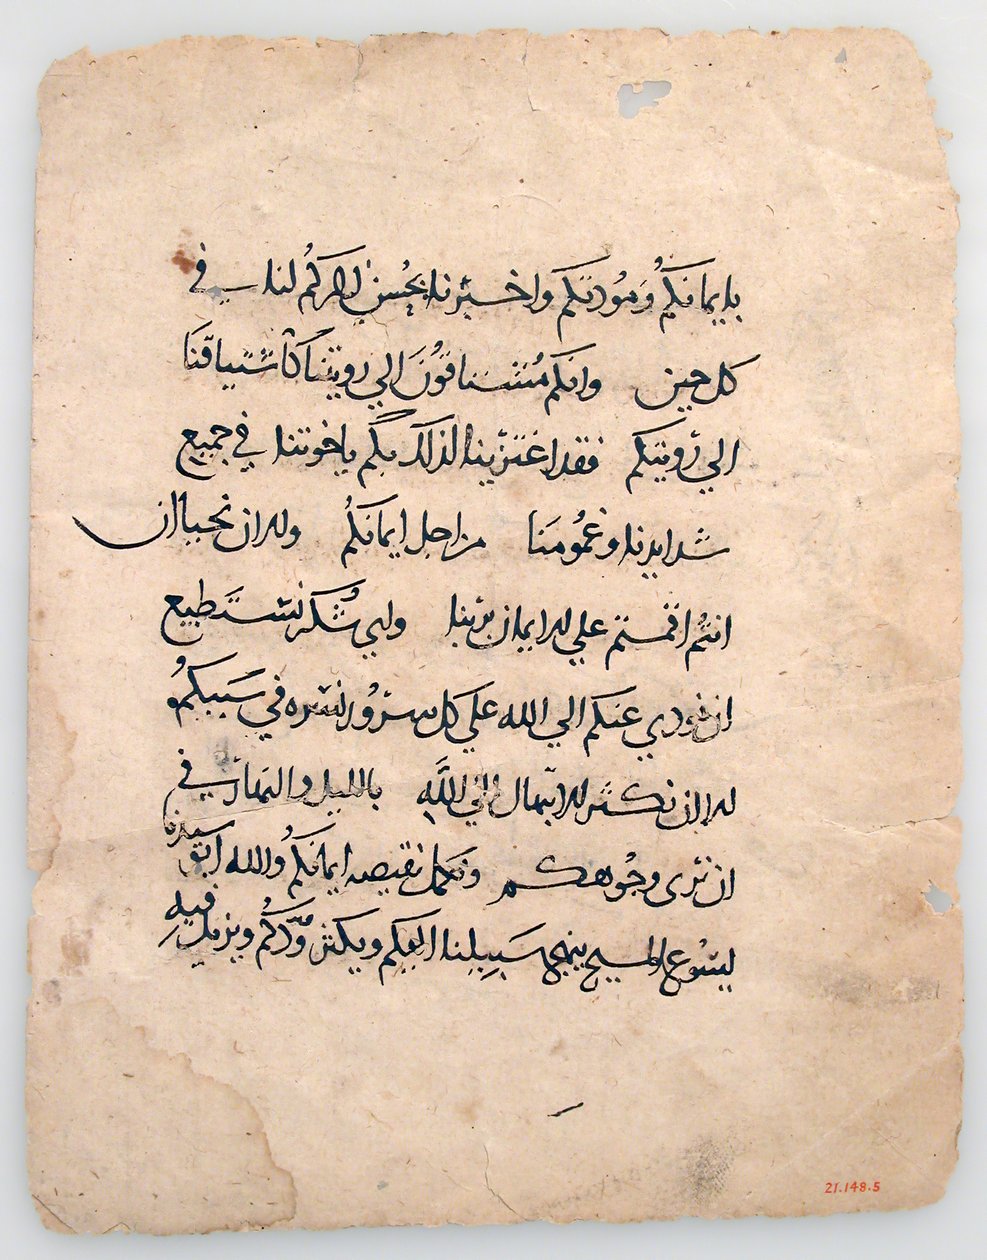 بايمانكم ومودتكم واخبرنا بحسن ذكركم لنا في
كل حين وانكم مشتاقون الي رويتنا كاشتياقنا
الي رويتكم فقد اعتزينا لذلك بكم ياخوتنا في جميع
شدايدنا وغمومنا من اجل ايمانكم والان نحيا ان
انتم اقمتم علي الايمان بربنا واي شكر نستطيع
ان نودي عنكم الي الله علي كل سرور نسره في سببكم
الا ان نكثر الابتهال الي الله بالليل والنهار في
ان نرى وجوهكم ونكمل نقيصه ايمانكم والله ابو سيدنا
ليسوع المسيح ينهج سبيلنا اليكم ويكثر ودكم ويزيد فيه
21.148.5